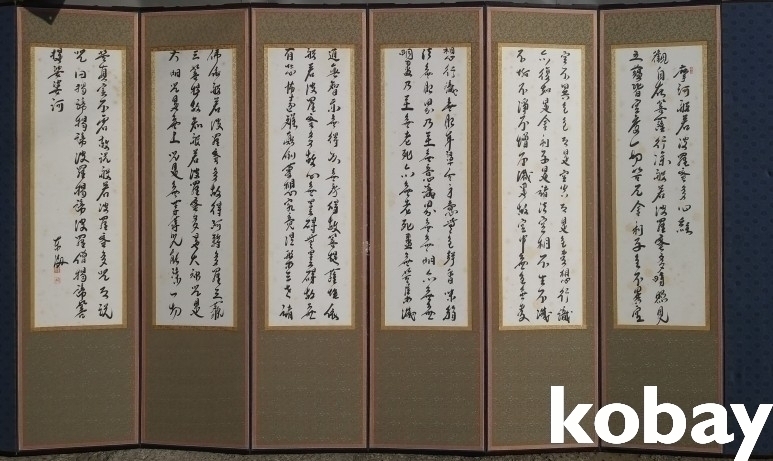 摩訶般若波羅蜜多心經
觀自在菩薩行深般若波羅蜜多時照見
五蘊皆空度一切苦厄舍利子色不異空
空不異色色即是空空即是色受想行識
亦復如是舍利子是諸法空相不生不滅
不垢不淨不增不減是故空中無色無受
想行識無眼耳鼻舌身意無色聲香味觸
法無眼界乃至無意識界無無明亦無無
明盡乃至無老死亦無老死盡無苦集滅
道無智亦無得以無所得故菩提薩埵依
般若波羅蜜多故心無罣礙無罣礙故無
有恐怖遠離顛倒夢想究竟涅槃三世諸
佛依般若波羅蜜多故得阿耨多羅三藐
三菩提故知般若波羅蜜多是大神咒是
大明咒是無上咒是無等等咒能除一切
苦真實不虛故說般若波羅蜜多咒即說
咒曰揭諦揭諦波羅揭諦波羅僧揭諦菩
提娑婆訶
kobay